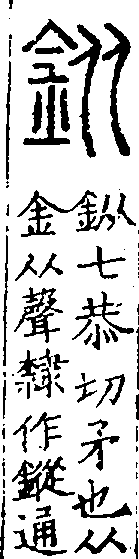 七恭切矛也从
金从聲隸作鏦通